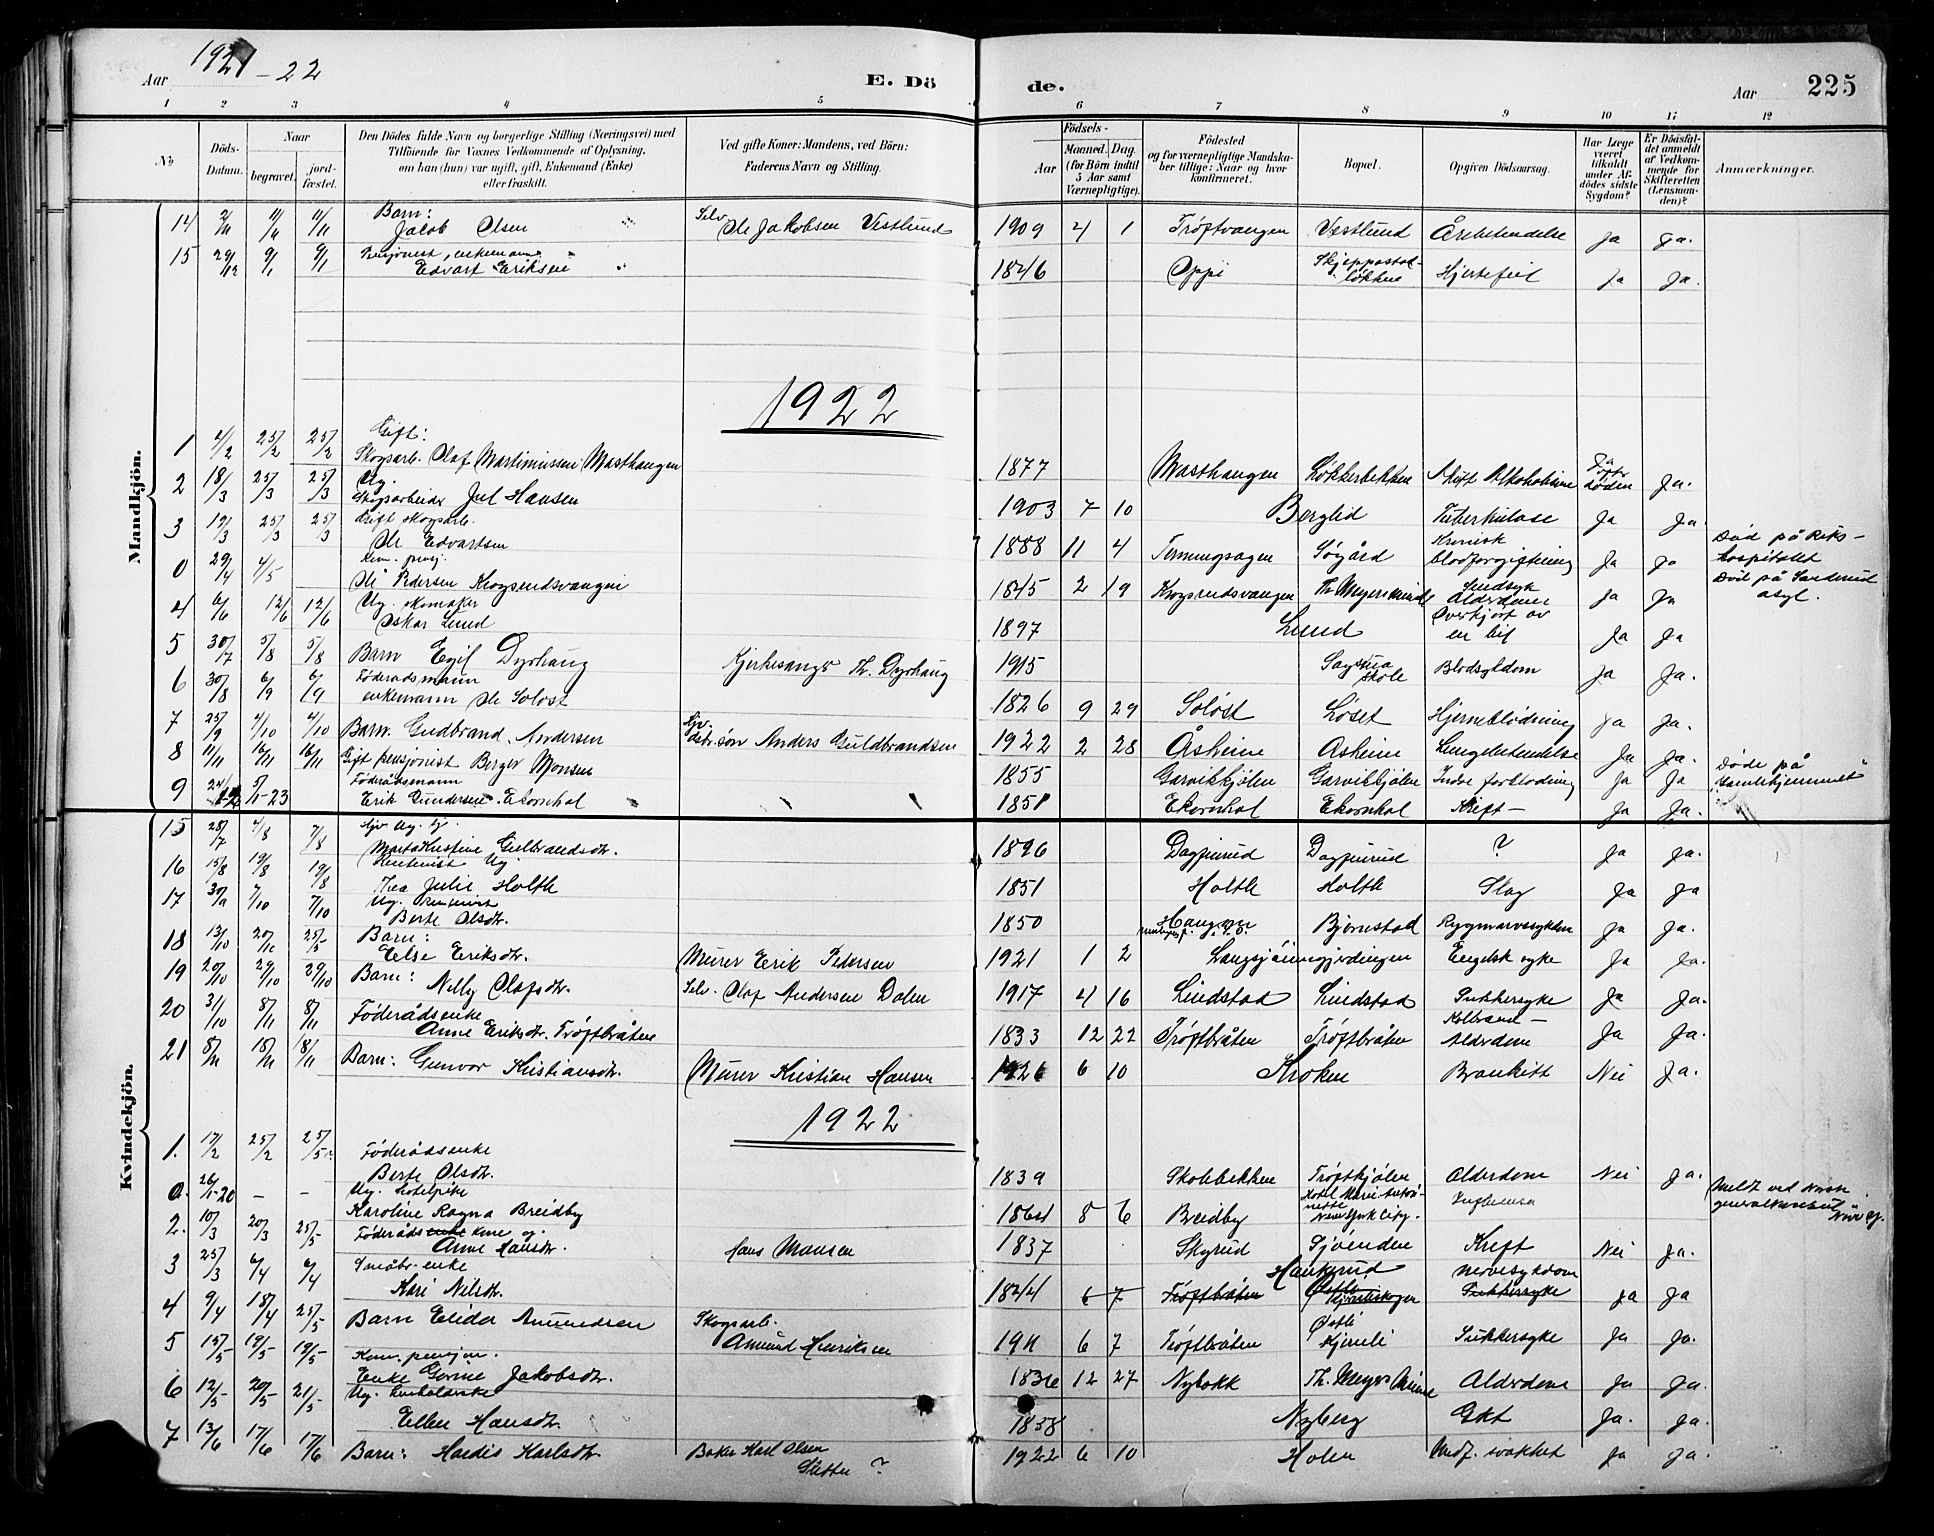 Aar 1921-22 E. Dö de. Aar 225
1 2 3 4 5 6 7 8 9 10 11 12
No
Döds-Datum.
Naar begravet. jord-fæstet.
Den Dödes fulde Navn og borgerlige Stilling (Næringsvei) med
Tilföiende for Voxnes Vedkommende af Oplysning,
om han (hun) var ugift, gift, Enkemand (Enke)
eller fraskilt.
Ved gifte Koner: Mandens, ved Börn:
Faderens Navn og Stilling.
Födsels-
Aar
Maaned. Dag.
(for Börn indtil
5 Aar samt
Værnepligtige).
Födested
og for værnepligtige Mandska-
ber tillige: Naar og hvor
konfirmeret.
Bopæl.
Opgiven Dödsaarsag.
Har Læge
været
tilkaldt
under Af-
dödes sidste
Sygdom?
Er Dödsfal-
det anmeldt
af Vedkom-
mende for
Skifteretten
(Lensman-
den)?
Anmærkninger.
Mandkjön.
14 2/11 11/11 11/11 Barn: Jakob Olsen Selv. Ole Jakobsen Vestlund 1909 4 1 Trøftvangen Vestlund Ja Ja.
15 29/12 9/1 9/1 Pensjonist, enkemann Edvart Eriksen 1846 Oppi Skjeppestad-løkken Hjertefeil Ja Ja.
1922
1 4/2 25/2 25/2 Gift: Skogsarb. Olaf Martinussen Masthaugen 1877 Masthaugen Løkkerbekken Akut Alkoholisme Ja efter døden Ja.
2 18/3 25/3 25/3 Ug. Skogsarbeider Jul Hansen 1903 7 10 Berglid Tuberkulose Ja Ja.
3 19/3 25/3 25/3 Gift skogsarb. Ole Edvartsen 1888 11 4 Terningsagen Søgård Kronisk blodforgiftning Ja Ja Død på Riks-hospitalet
0 29/4 4/5 Kom. pensj. Ole Pedersen Krogsrudsvangen 1845 2 19 Krogsrudsvangen Th. Meyers minde Sindsyk Alderdom Ja Ja Død på Sanderud asyl.
4 6/6 12/6 12/6 Ug. skomaker Oskar Lund 1897 Lund Overkjørt av en bil Ja Ja
5 30/7 5/8 5/8 Barn Egil Dyrhaug Kjerkesanger Th. Dyrhaug 1915 Sagstua skole Blodsykdom Ja Ja.
6 30/8 6/9 6/9 Føderådsmann enkemann Ole Soløst 1826 9 29 Soløst Løset Hjerneblødning Ja Ja.
7 25/9 4/10 4/10 Barn. Gudbrand Andersen Anders Guldbrandsen 1922 2 28 Åsheim Åsheim Lungebetendelse Ja Ja.
8 11/11 16/11 16/11 Gift pensjonist Berger Monsen 1855 Garvikkjølen Garvikkjølen Indre forblødning Ja Ja Døde på Gamlehjemmet
9 24/12 5/1-23 Føderådsmann Erik Gundersen Ekornhol 1851 Ekornhol Ekornhol Kreft Ja Ja.
Kvindekjön.
15 28/7 4/8 7/8 Marta Kristine Gulbrandsdtr. 1896 Dagfinrud Dagfinrud ? Ja Ja.
16 15/8 19/8 19/8 Rentenist Ug. Thea Julie Holth 1851 Holth Holth Slag Ja Ja
17 30/9 7/10 7/10 Ug. Berte Olsdtr. 1850 Haugen Bjørnstad Rygmarvssykdom Ja Ja.
18 13/10 20/10 25/5 Barn: Else Eriksdtr. Murer Erik Pedersen 1921 1 2 Langsjøinngjerdingen Engelsk syke Ja Ja.
19 20/10 29/10 29/10 Barn: Nelly Olafsdtr. Selv. Olaf Andersen Dalen 1917 4 16 Lindstad Lindstad Sukkersyke Ja Ja.
20 31/10 8/11 8/11 Føderådsenke Anne Eriksdtr. Trøftbråten 1833 12 22 Trøftbråten Trøftbråten Kolbrand-Alderdom Ja Ja.
21 8/11 18/11 18/11 Barn: Gunvor Kristiansdtr. Murer Kristian Hansen 1921 6 10 Kroken Bronkitt Nei Ja.
1922
1. 17/2 25/2 25/5 Føderådsenke Berte Olsdtr. 1839 Skolebekken Trøftkjølen Alderdom Nei Ja.
0. 26/1-20 - - Ug. hotelpike Karoline Ragna Breidby 1864 8 6 Breidby Hotel Marie Antoi-nette New York City. Influensa Meldt ved Norsk generalkonsul New Y.
2. 10/3 20/3 25/5 Føderådsenke kone Anne Hansdtr. Hans Monsen 1837 Skyrud Sjøenden Kreft Nei Ja.
3 25/3 6/4 6/4 Småbr. enke Kari Nilsdtr. 1844 6 7 Trøftbråten Haukerud Østli Kjernliskogen Nervesykdom Sukkersyke Ja Ja
4 9/4 18/4 25/5 Barn Elida Amundsen Skogsarb. Amund Henriksen 1911 6 7 Trøftbråten Østli Kjernli Sukkersyke Ja Ja.
5 15/5 19/5 19/5 Kom. pensjon. Enke Gorine Jakobsdtr. 1836 12 27 Nybakk Th. Meyers Minde Alderdom Ja Ja.
6 12/5 20/5 21/5 Ug. husholderske Ellen Hansdtr. 1858 Nyberg Gikt Ja. Ja.
7 13/6 17/6 17/6 Barn: Hardis Karlsdtr. Baker Karl Olsen Sletten ? 1922 6 10 Holen Medf. svakhet Ja Ja.